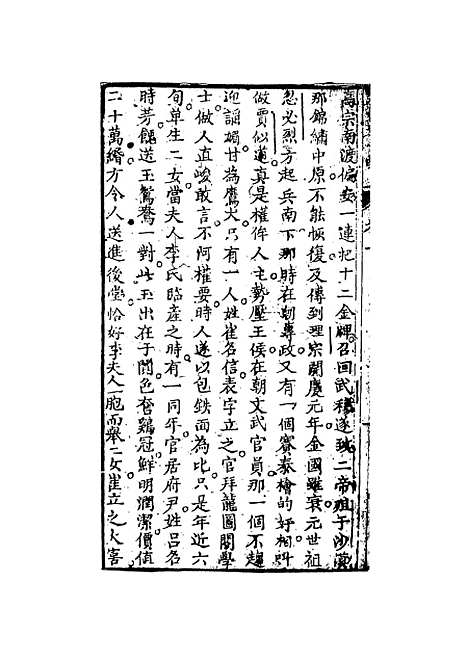 高宗南渡偏安一連把十二金牌召回武穆遂致二帝殂于沙漠
那錦繡中原不能恢復及傳到理宗開慶元年金國雖衰元世祖
忽必烈方起兵南下那時在朝專政又有一個賽秦檜的奸相叫
做賈似道真是權侔人主勢壓王侯在朝文武官員那一個不趨
迎謟媚甘為鷹犬只有一人姓崔名信表字立之官拜龍圖閣學
士做人直峻敢言不阿權要時人遂以包鉄面為比只是年近六
旬單生二女當夫人李氏臨產之時有一同年官居府尹姓呂名
時芳餽送玉鴛鴦一對此玉出在于闐色奪鷄冠鮮明潤潔價值
二十萬緡方令人送進後堂恰好李夫人一胞而舉二女崔立之大喜